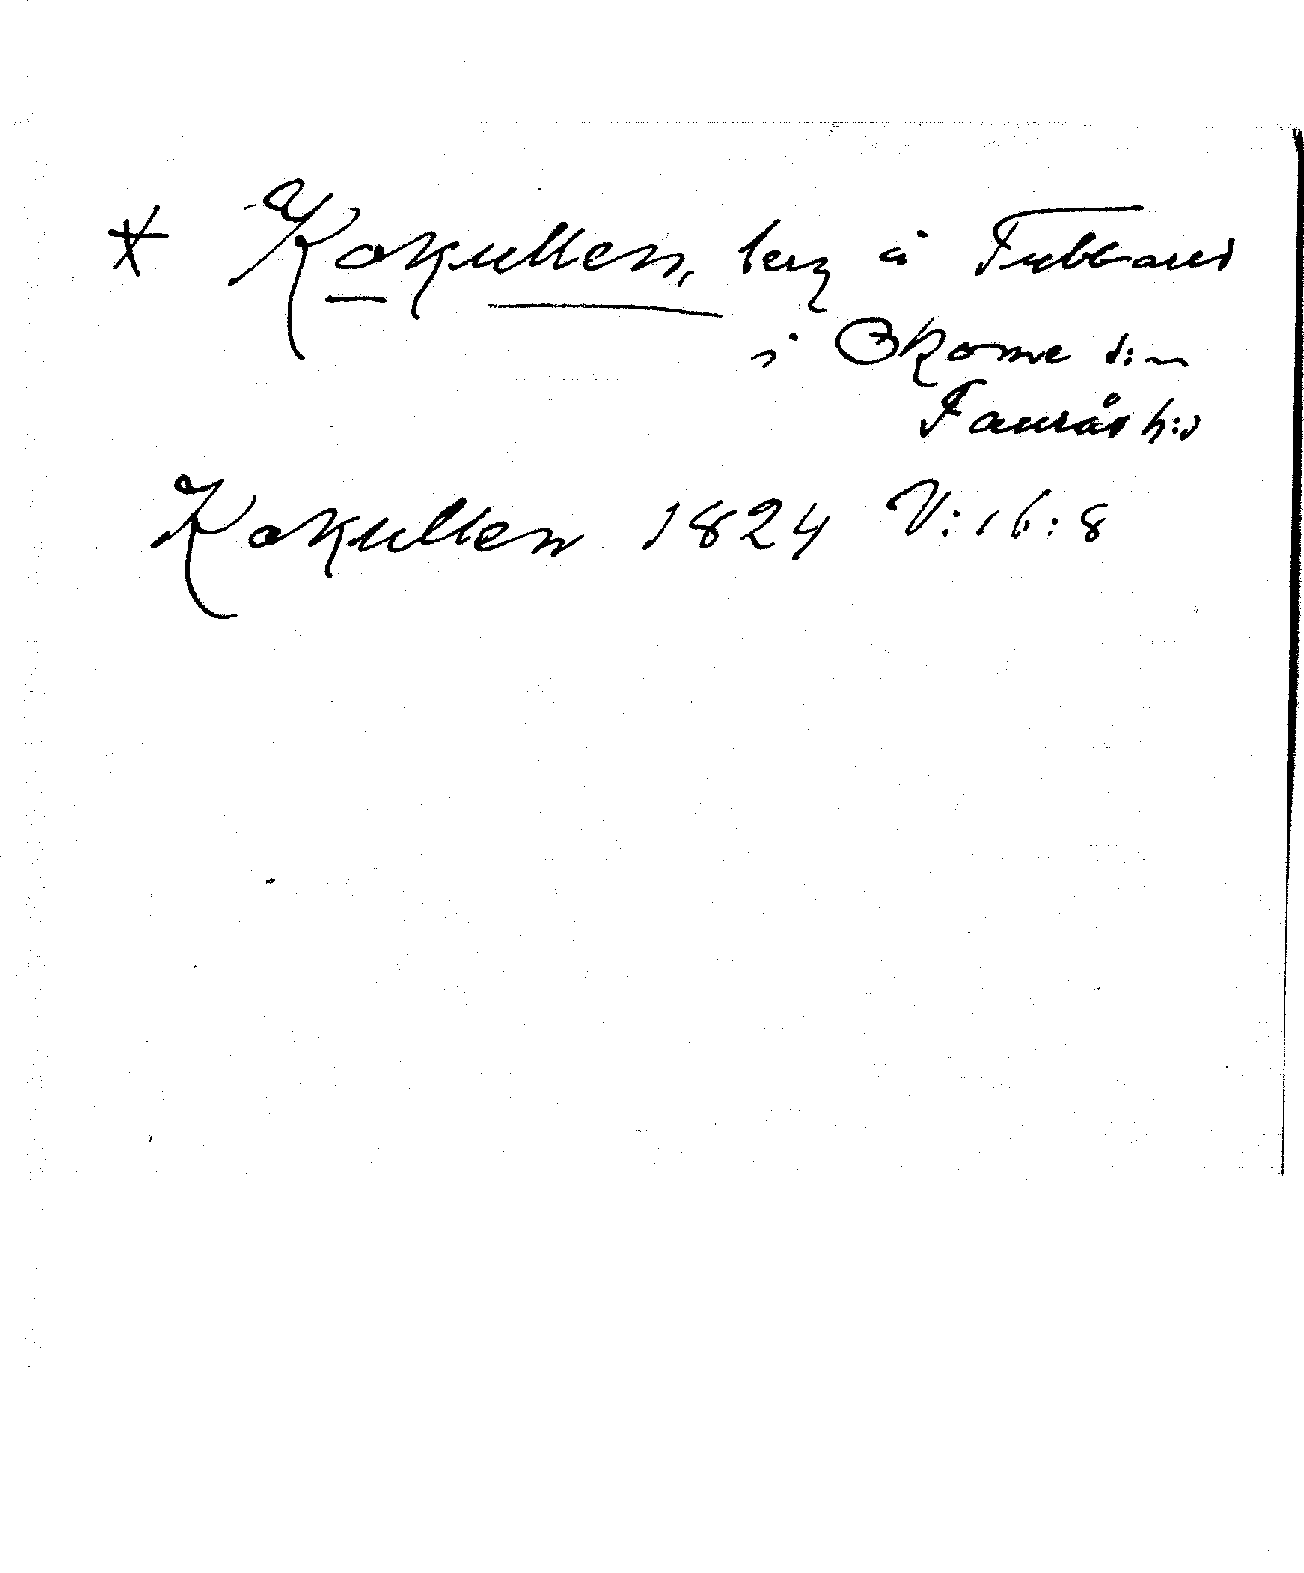 * Kokullen, berg å Tubbared
i Okome s:n
Faurås h:d
Kokullen 1824 V:16:8